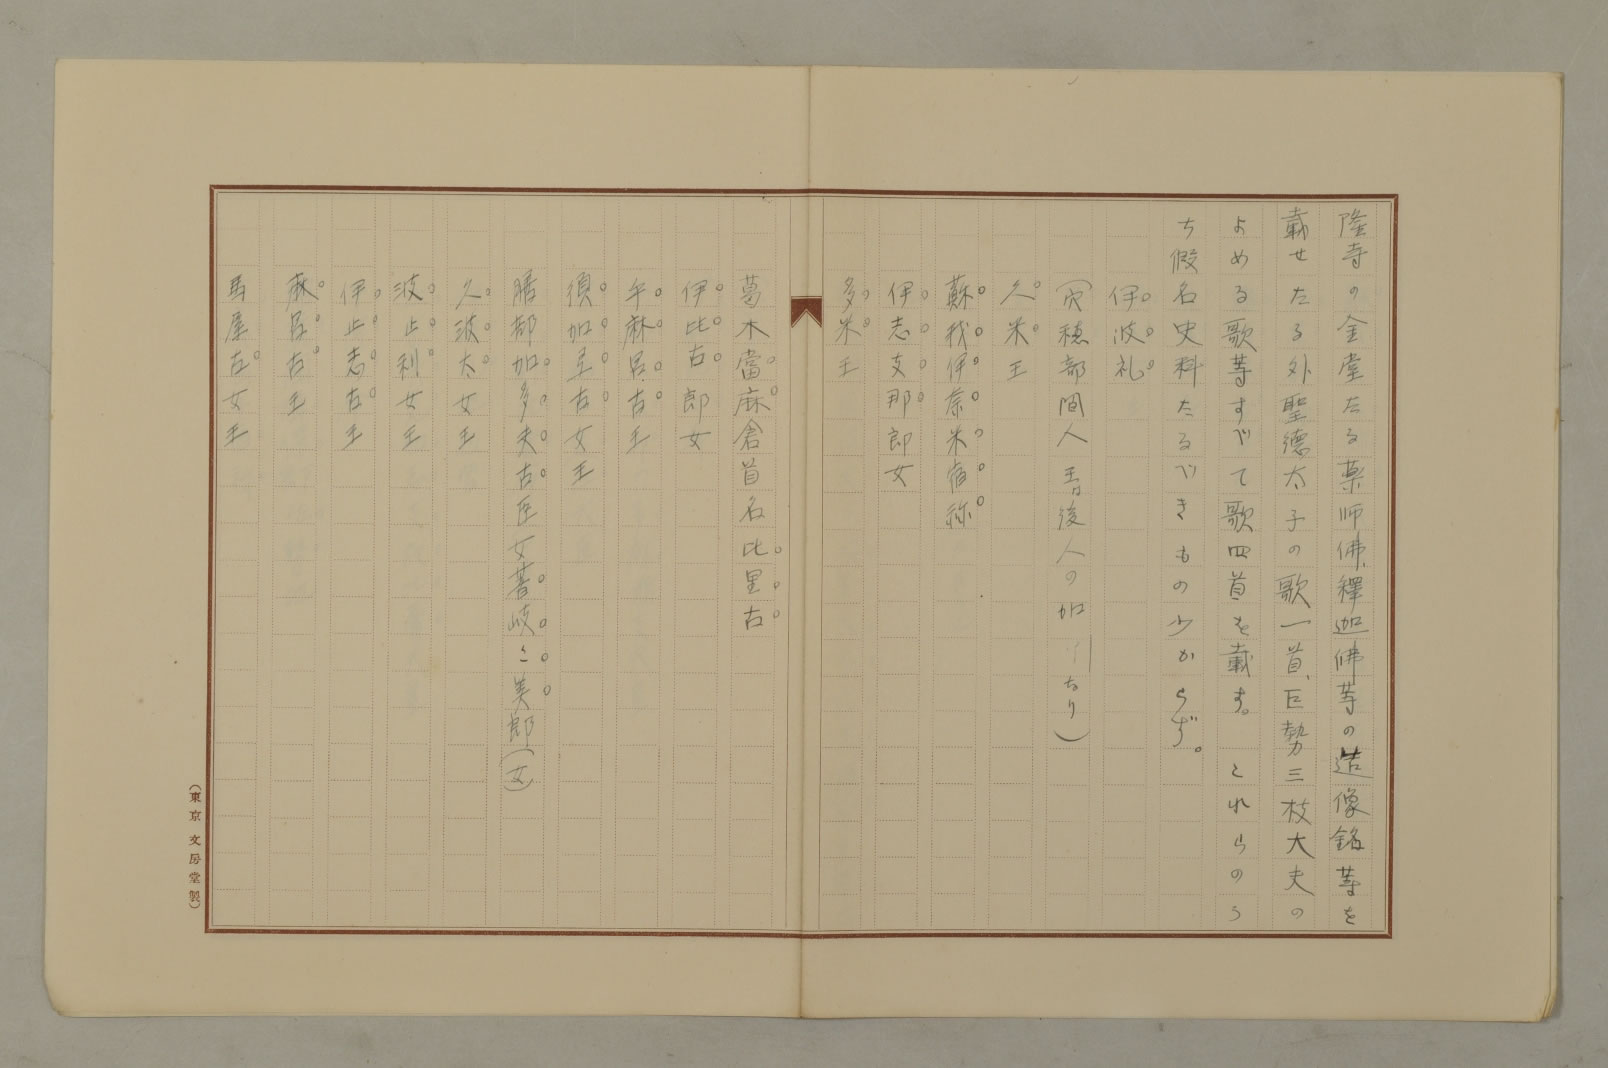 隆寺の金堂たる薬師佛、釋迦佛等の造像銘等を
載せたる外聖德太子の歌一首、巨勢三枝大夫の
よめる歌等すべて歌四首を載す。これらのう
ち假名史料たるべきもの少からず。
伊波礼
(穴穂部間人 後人の加 なり)
久米王
蘇我伊奈米宿祢
伊志支那郎女
多米王
葛木當麻倉首名比里古
伊比古郎女
乎麻呂古王
須加弖古女王
膳部加多夫古臣女菩岐〻美郎(女)
久波太女王
波止利女王
伊止志古王
麻呂古王
馬屋古女王
(東京 文房堂製)